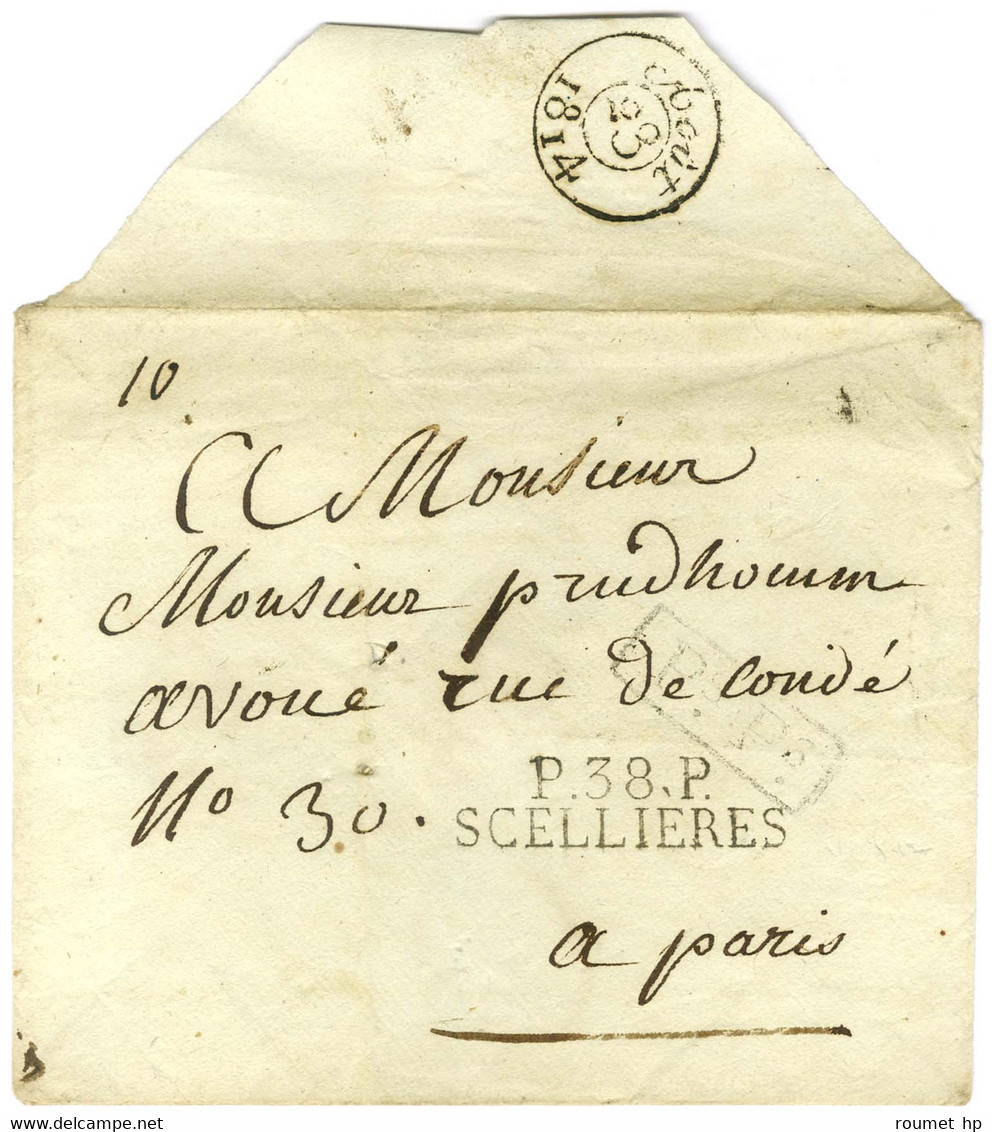 Août
23
1814
10
A Monsieur
Monsieur prudhomm
avoué rue de condé
No 30.
P.38.P.
SCELLIERES
P.P.P.S.
a paris
roumet hp